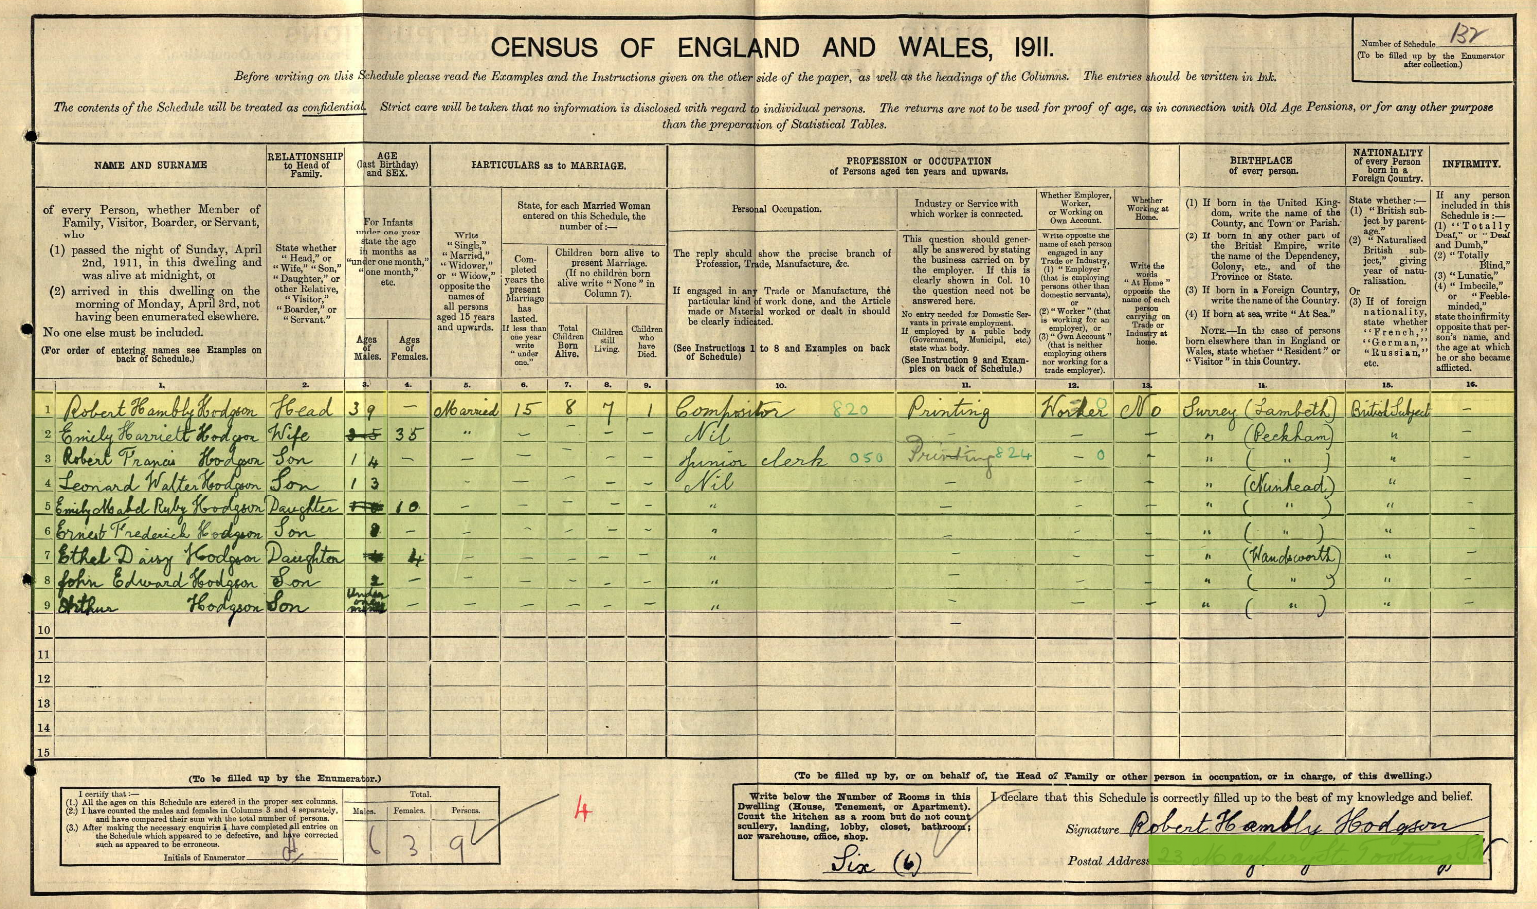 CENSUS OF ENGLAND AND WALES, 1911.
Number of Schedule 132
(To be filled up by the Enumerator after collection.)
Before writing on this Schedule please read the Examples and the Instructions given on the other side of the paper, as well as the headings of the Columns. The entries should be written in Ink.
The contents of the Schedule will be treated as confidential. Strict care will be taken that no information is disclosed with regard to individual persons. The returns are not to be used for proof of age, as in connection with Old Age Pensions, or for any other purpose
than the preparation of Statistical Tables.
NAME AND SURNAME
of every Person, whether Member of Family, Visitor, Boarder, or Servant,
who
(1) passed the night of Sunday, April 2nd, 1911, in this dwelling and was alive at midnight, or
(2) arrived in this dwelling on the morning of Monday, April 3rd, not having been enumerated elsewhere.
No one else must be included.
(For order of entering names see Examples on back of Schedule.)
RELATIONSHIP to Head of Family.
State whether "Head," or "Wife," "Son," "Daughter," or other Relative, "Visitor," "Boarder," or "Servant."
AGE (last Birthday) and SEX.
For Infants under one year state the age in months as "under one month," "one month," etc.
Ages of Males.
Ages of Females.
PARTICULARS as to MARRIAGE.
Write "Single," "Married," "Widower," or "Widow," opposite the names of all persons aged 15 years and upwards.
State, for each Married Woman entered on this Schedule, the number of:—
Completed years the present Marriage has lasted. If less than one year write "under one."
Children born alive to present Marriage. (If no children born alive write "None" in Column 7).
Total Children Born Alive.
Children still Living.
Children who have Died.
PROFESSION or OCCUPATION of Persons aged ten years and upwards.
Personal Occupation.
The reply should show the precise branch of Profession, Trade, Manufacture, &c.
If engaged in any Trade or Manufacture, the particular kind of work done, and the Article made or Material worked or dealt in should be clearly indicated.
(See Instructions 1 to 8 and Examples on back of Schedule.)
Industry or Service with which worker is connected.
This question should generally be answered by stating the business carried on by the employer. If this is clearly shown in Col. 10 the question need not be answered here.
No entry needed for Domestic Servants in private employment.
If employed by a public body (Government, Municipal, etc.) state what body.
(See Instruction 9 and Examples on back of Schedule.)
Whether Employer, Worker, or Working on Own Account.
Write opposite the name of each person engaged in any Trade or Industry, (1) "Employer" (that is employing persons other than domestic servants), or (2) "Worker" (that is working for an employer), or (3) "Own Account" (that is neither employing others nor working for a trade employer).
Whether Working at Home.
Write the words "At Home" opposite the name of each person carrying on Trade or Industry at home.
BIRTHPLACE of every person.
(1) If born in the United Kingdom, write the name of the County, and Town or Parish.
(2) If born in any other part of the British Empire, write the name of the Dependency, Colony, etc., and of the Province or State.
(3) If born in a Foreign Country, write the name of the Country.
(4) If born at sea, write "At Sea."
NOTE.—In the case of persons born elsewhere than in England or Wales, state whether "Resident" or "Visitor" in this Country.
NATIONALITY of every Person born in a Foreign Country.
State whether:—
(1) "British subject by parentage."
(2) "Naturalised British subject," giving year of naturalisation.
Or
(3) If of foreign nationality, state whether "French," "German," "Russian," etc.
INFIRMITY.
If any person included in this Schedule is:—
(1) "Totally Deaf," or "Deaf and Dumb,"
(2) "Totally Blind,"
(3) "Lunatic,"
(4) "Imbecile," or "Feeble-minded,"
state the infirmity opposite that person's name, and the age at which he or she became afflicted.
1. 2. 3. 4. 5. 6. 7. 8. 9. 10. 11. 12. 13. 14. 15. 16.
1 Robert Hambly Hodgson Head 39 — Married 15 8 7 1 Compositor 820 Printing Worker 0 No Surrey (Lambeth) British Subject —
2 Emily Harriett Hodgson Wife 35 35 " — — — — Nil — — — " (Peckham) " —
3 Robert Francis Hodgson Son 14 — — — — — — Junior clerk 050 Printing 824 — 0 — " ( " ) " —
4 Leonard Walter Hodgson Son 13 — — — — — Nil — — — " (Nunhead) " —
5 Emily Mabel Ruby Hodgson Daughter 10 — — — — — " — — — " ( " ) " —
6 Ernest Frederick Hodgson Son 8 — — — — — — " — — — " ( " ) " —
7 Ethel Daisy Hodgson Daughter 4 4 — — — — — " — — — " (Wandsworth) " —
8 John Edward Hodgson Son 2 — — — — — — " — — — " ( " ) " —
9 Arthur Hodgson Son under one month — — — — — — " — — — " ( " ) " —
10
11
12
13
14
15
(To be filled up by the Enumerator.)
I certify that:—
(1.) All the ages on this Schedule are entered in the proper sex columns.
(2.) I have counted the males and females in Columns 3 and 4 separately, and have compared their sum with the total number of persons.
(3.) After making the necessary enquiries I have completed all entries on the Schedule which appeared to be defective, and have corrected such as appeared to be erroneous.
Initials of Enumerator
Total.
Males. Females. Persons.
6 3 9
4
(To be filled up by, or on behalf of, the Head of Family or other person in occupation, or in charge, of this dwelling.)
Write below the Number of Rooms in this Dwelling (House, Tenement, or Apartment). Count the kitchen as a room but do not count scullery, landing, lobby, closet, bathroom; nor warehouse, office, shop.
Six (6)
I declare that this Schedule is correctly filled up to the best of my knowledge and belief.
Signature Robert Hambly Hodgson
Postal Address